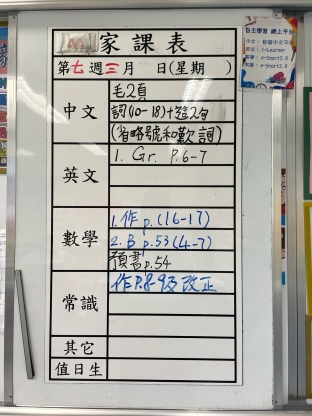 家課表
第七週三月 日(星期 )
中文
毛2頁
詞(10-18)+造2句
(省略號和歎詞)
英文
1. Gr. P.6-7
數學
1.作 p.(16-17)
2. B p.53(4-7)
預書p.54
常識
作P.8-9及改正
其它
值日生
自主學習 網上平台